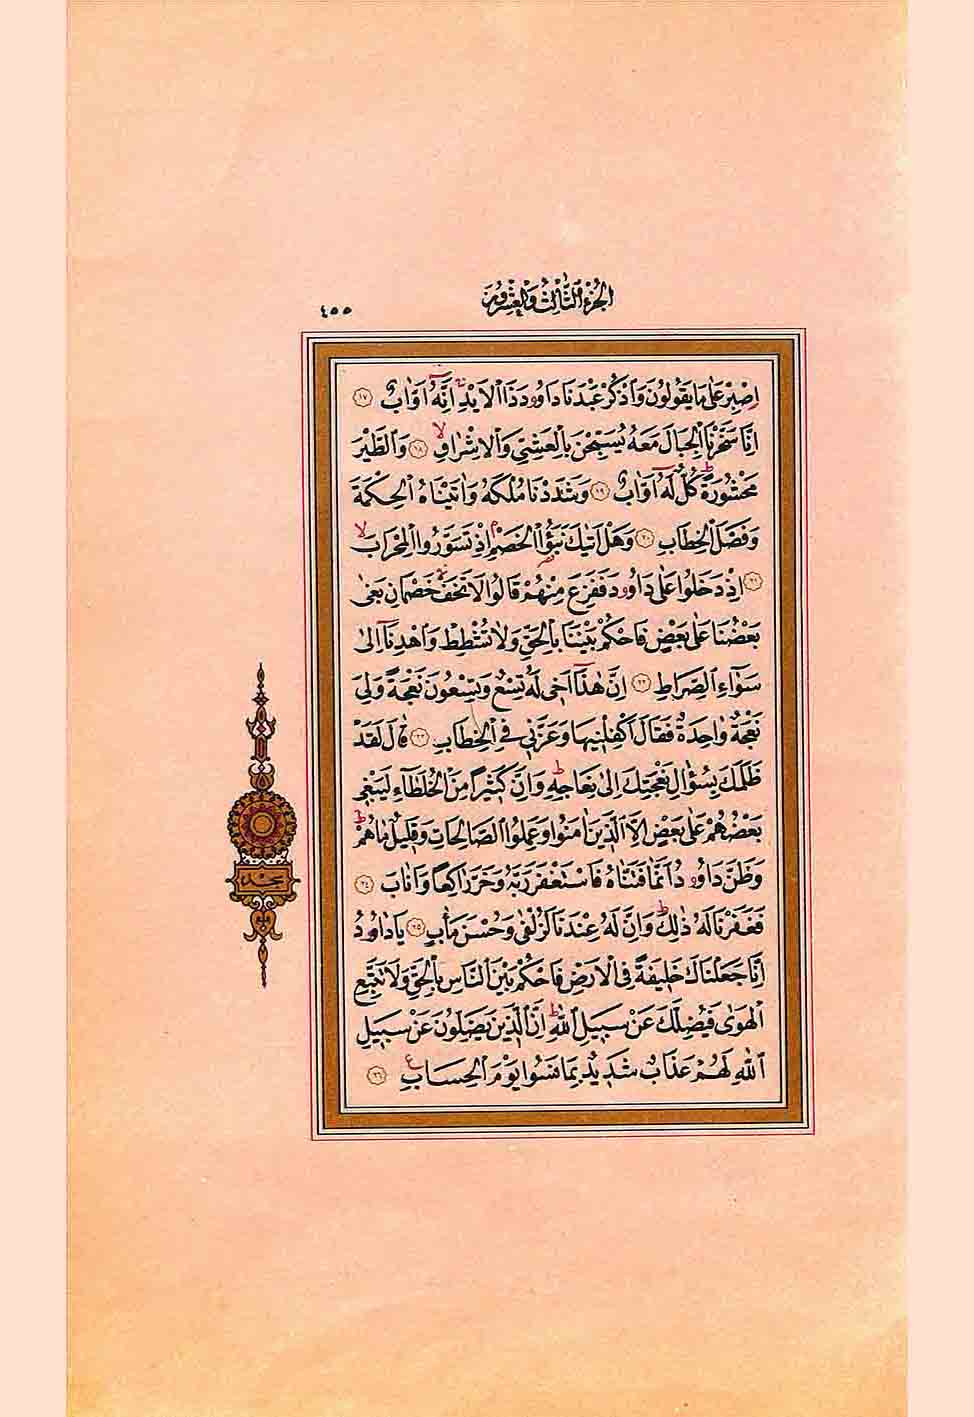 الجُزْءُ الثَّالِثُ وَالْعِشْرُونَ
٤٥٥
اِصْبِرْ عَلٰى مَا يَقُولُونَ وَاذْكُرْ عَبْدَنَا دَاوُ۫دَ ذَا الْاَيْدِۚ اِنَّهُٓ اَوَّابٌ ﴿١٧﴾
اِنَّا سَخَّرْنَا الْجِبَالَ مَعَهُ يُسَبِّحْنَ بِالْعَشِيِّ وَالْاِشْرَاقِۙ ﴿١٨﴾ وَالطَّيْرَ
مَحْشُورَةًۜ كُلٌّ لَهُٓ اَوَّابٌ ﴿١٩﴾ وَشَدَدْنَا مُلْكَهُ وَاٰتَيْنَاهُ الْحِكْمَةَ
وَفَصْلَ الْخِطَابِ ﴿٢٠﴾ وَهَلْ اَتٰيكَ نَبَؤُ۬ا الْخَصْمِۢ اِذْ تَسَوَّرُوا الْمِحْرَابَۙ
﴿٢١﴾ اِذْ دَخَلُوا عَلٰى دَاوُ۫دَ فَفَزِعَ مِنْهُمْ قَالُوا لَا تَخَفْۚ خَصْمَانِ بَغٰى
بَعْضُنَا عَلٰى بَعْضٍ فَاحْكُمْ بَيْنَنَا بِالْحَقِّ وَلَا تُشْطِطْ وَاهْدِنَٓا اِلٰى
سَوَٓاءِ الصِّرَاطِ ﴿٢٢﴾ اِنَّ هٰذَٓا اَخ۪ي لَهُ تِسْعٌ وَتِسْعُونَ نَعْجَةً وَلِيَ
نَعْجَةٌ وَاحِدَةٌ فَقَالَ اَكْفِلْن۪يهَا وَعَزَّن۪ي فِي الْخِطَابِ ﴿٢٣﴾ قَالَ لَقَدْ
ظَلَمَكَ بِسُؤَالِ نَعْجَتِكَ اِلٰى نِعَاجِه۪ۜ وَاِنَّ كَث۪يراً مِنَ الْخُلَطَٓاءِ لَيَبْغ۪ي
بَعْضُهُمْ عَلٰى بَعْضٍ اِلَّا الَّذ۪ينَ اٰمَنُوا وَعَمِلُوا الصَّالِحَاتِ وَقَل۪يلٌ مَا هُمْۜ
وَظَنَّ دَاوُ۫دُ اَنَّمَا فَتَنَّاهُ فَاسْتَغْفَرَ رَبَّهُ وَخَرَّ رَاكِعاً وَاَنَابَ ﴿٢٤﴾
فَغَفَرْنَا لَهُ ذٰلِكَۜ وَاِنَّ لَهُ عِنْدَنَا لَزُلْفٰى وَحُسْنَ مَاٰبٍ ﴿٢٥﴾ يَا دَاوُ۫دُ
اِنَّا جَعَلْنَاكَ خَل۪يفَةً فِي الْاَرْضِ فَاحْكُمْ بَيْنَ النَّاسِ بِالْحَقِّ وَلَا تَتَّبِعِ
الْهَوٰى فَيُضِلَّكَ عَنْ سَب۪يلِ اللّٰهِۜ اِنَّ الَّذ۪ينَ يَضِلُّونَ عَنْ سَب۪يلِ
اللّٰهِ لَهُمْ عَذَابٌ شَد۪يدٌ بِمَا نَسُوا يَوْمَ الْحِسَابِ ع ﴿٢٦﴾
سجده